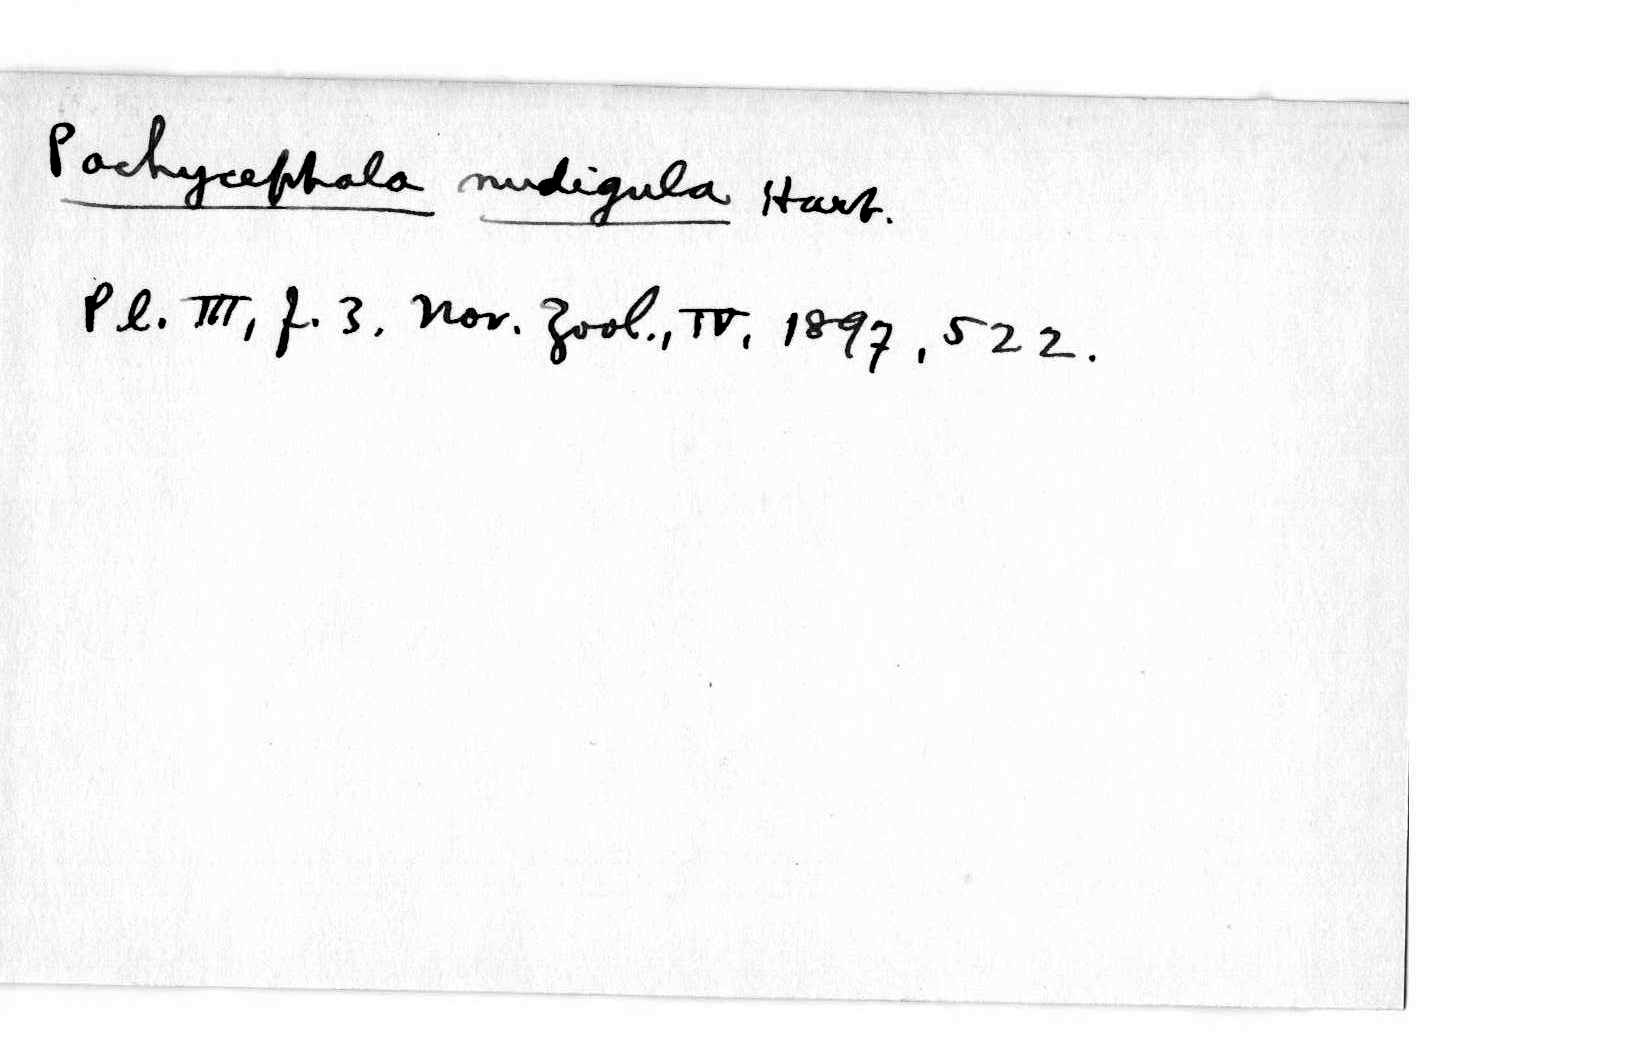 Pachycephala nudigula Hart.
Pl. III, f. 3. Nov. Zool., IV, 1897, 522.